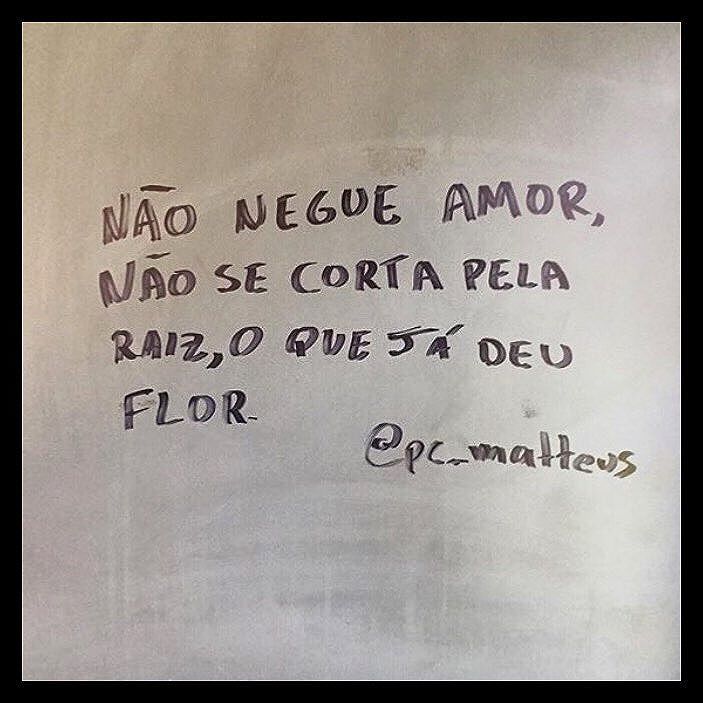 NÃO NEGUE AMOR,
NÃO SE CORTA PELA
RAIZ, O QUE JÁ DEU
FLOR.
@pc_matteus